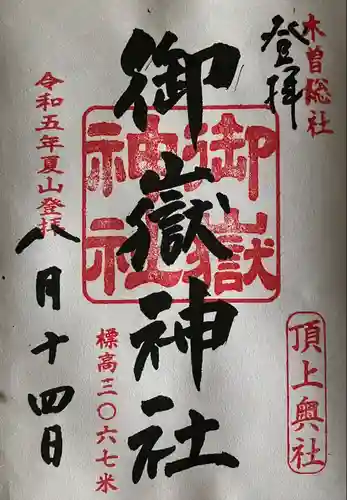 木曽総社
登拝
御嶽神社
御嶽
神社
頂上奥社
標高三〇六七米
令和五年夏山登拝
八月十四日